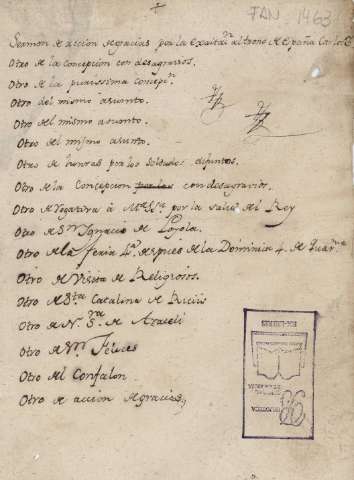 FAN. 1463
Sermon de accion de gracias por la Exaltn. al trono de España Carlos
Otro de la concepcion con desagravios.
Otro de la purissima Concepn.
Otro del mismo asunto.
Otro del mismo asunto.
Otro del mismo asunto.
Otro de honras por los Soldados difuntos.
Otro de la Concepcion con desagravios.
Otro de Rogativa à Ma. Sma. por la salud del Rey
Otro de Sn. Ignacio de Loyola.
Otro de la feria 4ª. despues de la Dominica 4. de Quarma.
Otro de Visita de Religiosos.
Otro de Sta. Catalina de Riccis
Otro de Nª. Sª. de Araceli
Otro de Sn. Felices
Otro del Confalon.
Otro de accion de gracias,
EX-LIBRIS
BIBLIOTECA